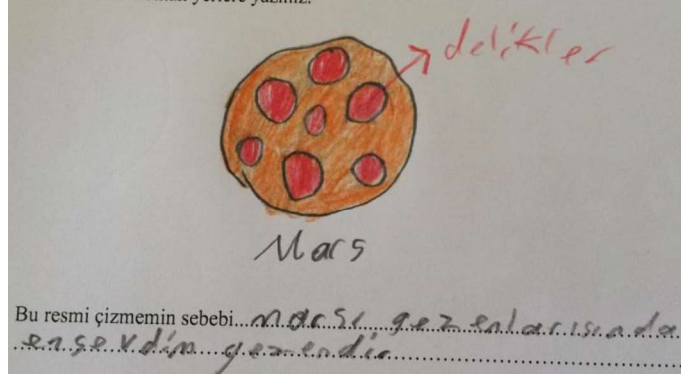 yerlere yazınız.
delikler
Mars
Bu resmi çizmemin sebebi...marsı gezenlarısında
ensevdim gezendir